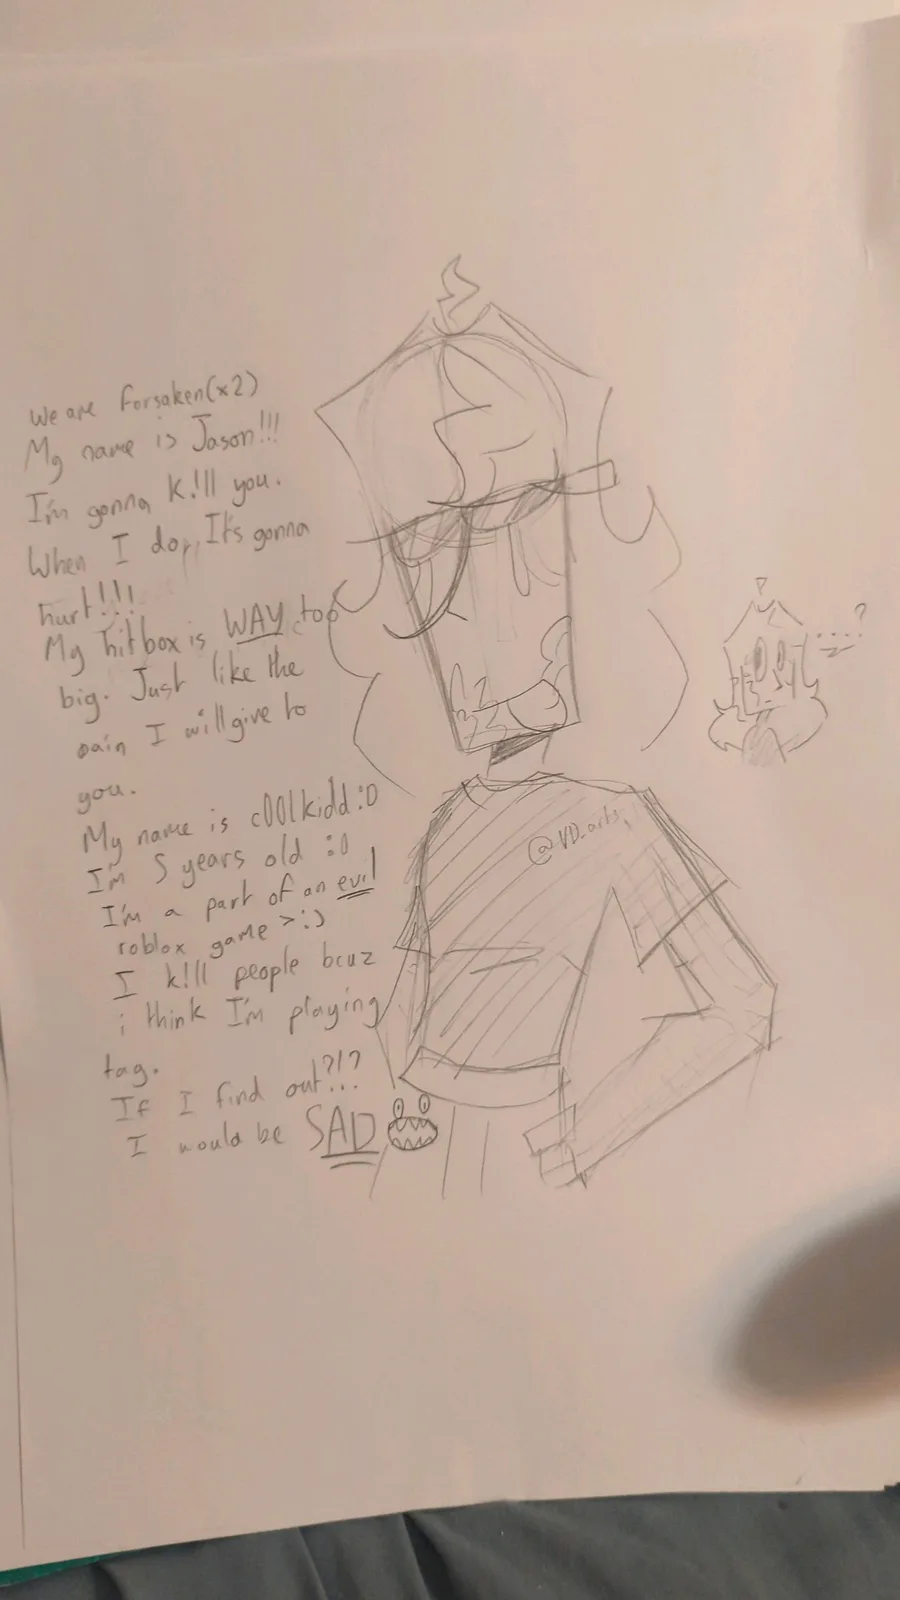 We are forsaken(x2)
My name is Jason!!!
I'm gonna k!ll you.
When I do, It's gonna
hurt!!!
My hitbox is WAY too
big. Just like the
pain I will give to
you.
My name is c00lkidd :D
I'm 5 years old :D
I'm a part of an evil
roblox game >:)
I k!ll people bcuz
i think I'm playing
tag.
If I find out?!?
I would be SAD
....?
@VD_arts